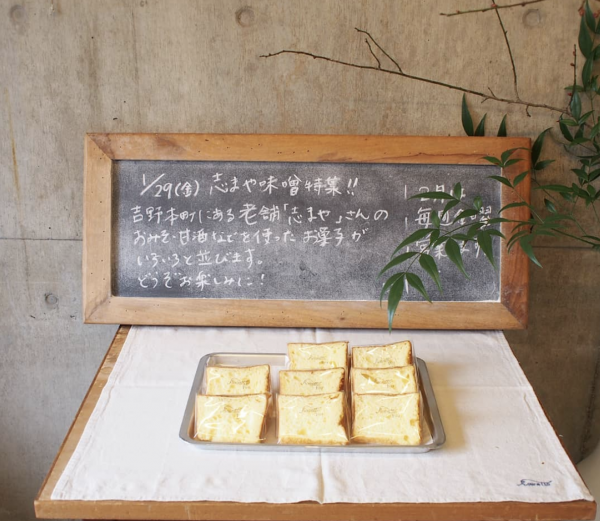 1/29(金) 志まや味噌特集!!
吉野本町にある老舗「志まや」さんの
おみそ・甘酒などを使ったお菓子が
いろいろと並びます。
どうぞお楽しみに!
2月は
毎週 曜
営業 ます